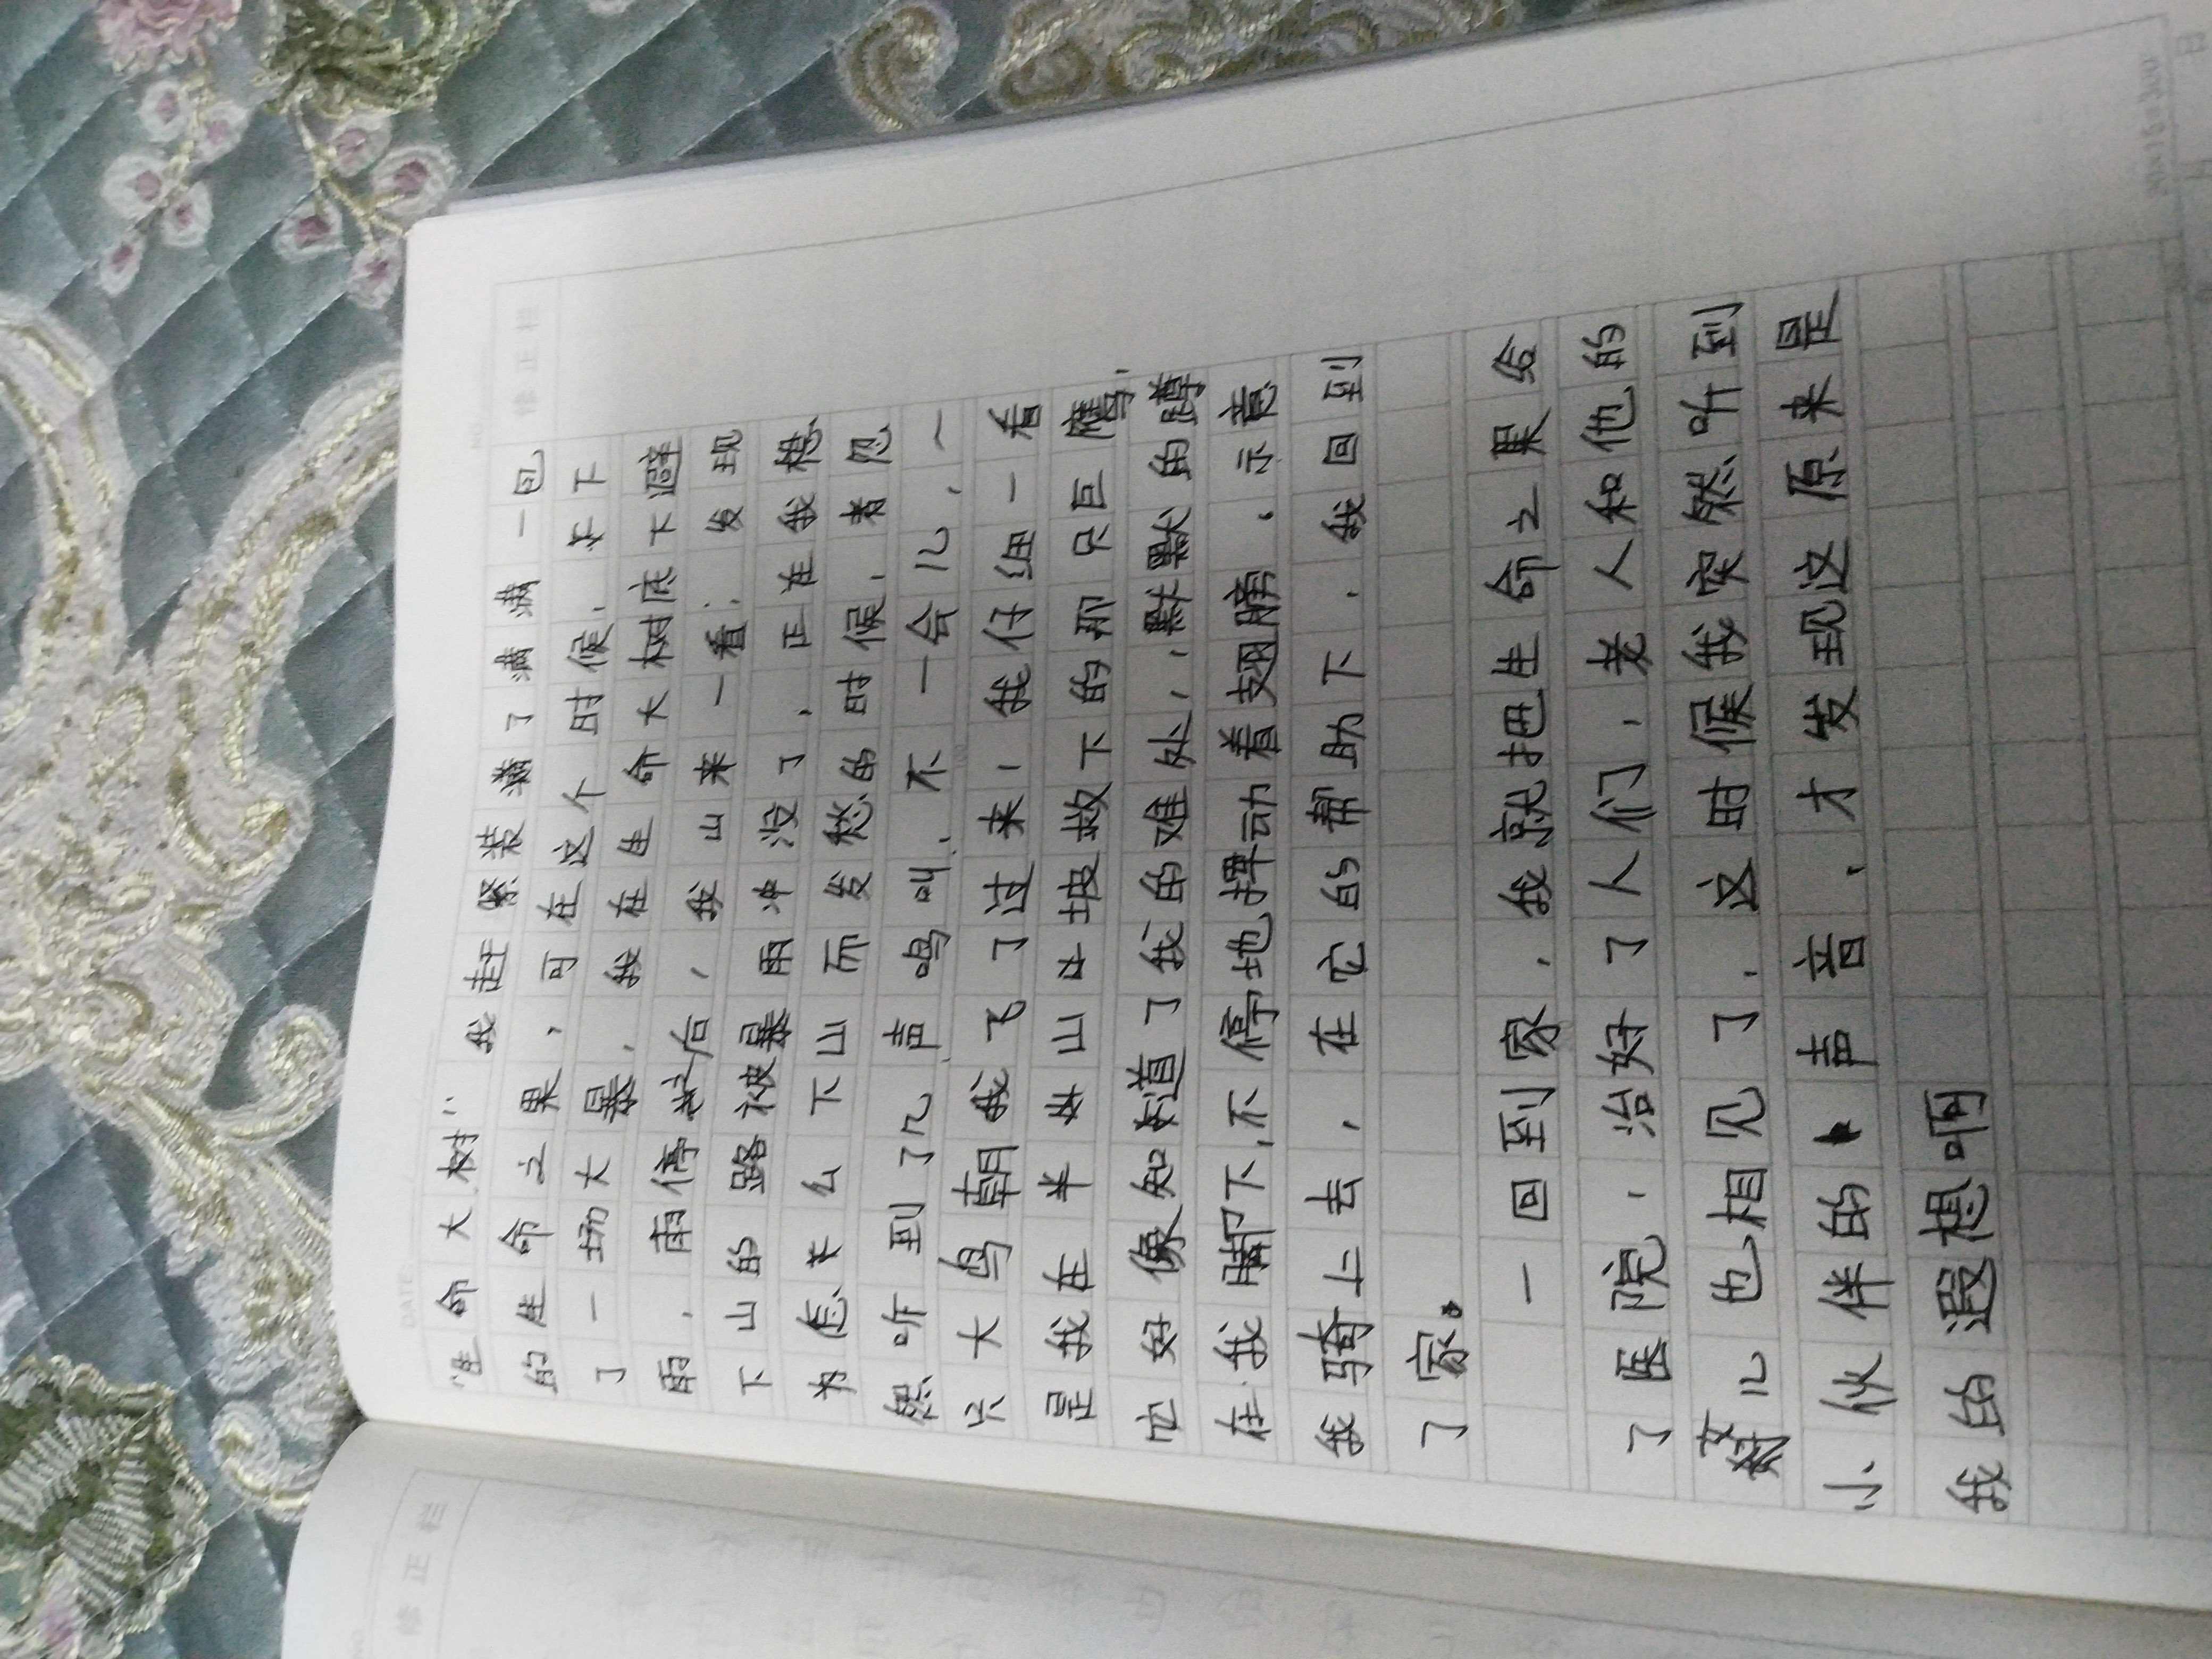 生命大树" 我赶紧装满了满满一包
的生命之果，可在这个时候，天下
了一场大暴，我在生命大树底下避
雨，雨停之后，我山来一看，发现
下山的路被暴雨冲没了，正在我想
为怎么下山而发愁的时候，着忽
然听到了几声鸣叫，不一会儿，一
只大鸟朝我飞了过来，我仔细一看
是我在半山坡救下的那只巨鹰，
它好像知道了我的难处，默默的蹲
在我脚下，不停地掸动着翅膀，示意
我骑上去，在它的帮助下，我回到
了家。
一回到家，我就把生命之果给
了医院，治好了人们，老人和他的
儿也相见了，这时候我突然听到
小伙伴的声音，才发现这原来是
我的遐想啊
修正栏
DATE
修正栏